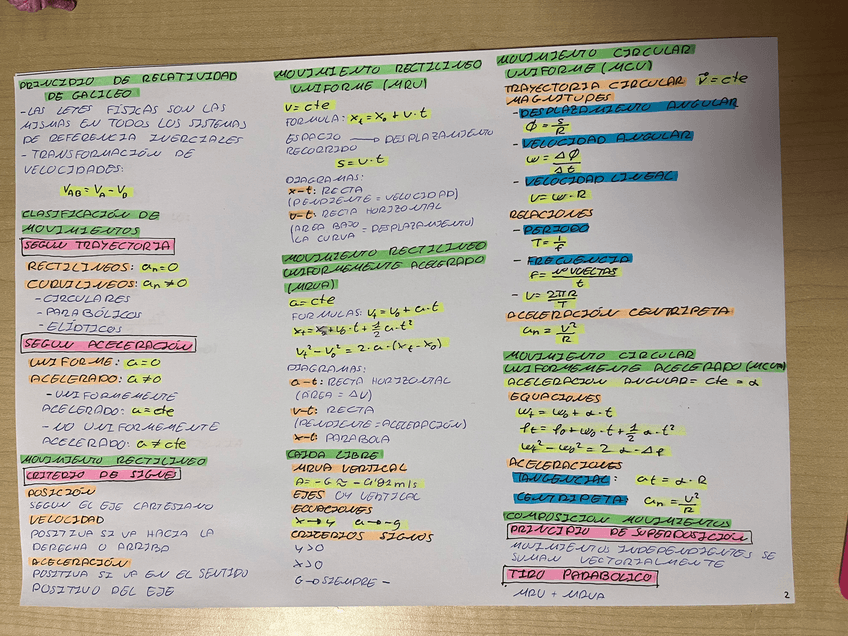 PRINCIPIO DE RELATIVIDAD
DE GALILEO
-LAS LEYES FÍSICAS SON LAS
MISMAS EN TODOS LOS SISTEMAS
DE REFERENCIA INERCIALES
-TRANSFORMACIÓN DE
VELOCIDADES:
V_AB = V_A - V_B
CLASIFICACIÓN DE
MOVIMIENTOS
SEGUN TRAYECTORIA
RECTILINEOS: an=0
CURVILINEOS: an≠0
-CIRCULARES
-PARABÓLICOS
-ELÍPTICOS
SEGUN ACELERACIÓN
UNIFORME: a=0
ACELERADO: a≠0
-UNIFORMEMENTE
ACELERADO: a=cte
-NO UNIFORMEMENTE
ACELERADO: a≠cte
MOVIMIENTO RECTILINEO
CRITERIO DE SIGNES
POSICIÓN
SEGUN EL EJE CARTESIANO
VELOCIDAD
POSITIVA SI VA HACIA LA
DERECHA O ARRIBA
ACELERACIÓN
POSITIVA SI VA EN EL SENTIDO
POSITIVO DEL EJE
MOVIMIENTO RECTILINEO
UNIFORME (MRU)
V=cte
FORMULA: x_t=x_0+v·t
ESPACIO → DESPLAZAMIENTO
RECORRIDO
s=v·t
DIAGRAMAS:
x-t: RECTA
(PENDIENTE=VELOCIDAD)
v-t: RECTA HORIZONTAL
(AREA BAJO =DESPLAZAMIENTO)
LA CURVA
MOVIMIENTO RECTILINEO
UNIFORMEMENTE ACELERADO
(MRUA)
a=cte
FORMULAS: v_t=v_0+a·t
x_t=x_0+v_0·t+1/2 a·t²
v_t²-v_0²=2·a·(x_t-x_0)
DIAGRAMAS:
a-t: RECTA HORIZONTAL
(AREA=ΔV)
v-t: RECTA
(PENDIENTE=ACELERACIÓN)
x-t: PARABOLA
CAIDA LIBRE
MRUA VERTICAL
A=-G≈-9'81m/s
EJES OY VERTICAL
ECUACIONES
x→y a→-g
CRITERIOS SIGNOS
y>0
x>0
G→SIEMPRE -
MOVIMIENTO CIRCULAR
UNIFORME (MCU)
TRAYECTORIA CIRCULAR V=cte
MAGNITUDES
-DESPLAZAMIENTO ANGULAR
Φ=s/R
-VELOCIDAD ANGULAR
ω=ΔΦ/Δt
-VELOCIDAD LINEAL
V=ω·R
RELACIONES
-PERIODO
T=1/f
-FRECUENCIA
f=nº VUELTAS/t
-V=2πR/T
ACELERACIÓN CENTRIPETA
an=V²/R
MOVIMIENTO CIRCULAR
UNIFORMEMENTE ACELERADO (MCUA)
ACELERACION ANGULAR= cte = α
EQUACIONES
ω_t=ω_0+α·t
φ_t=φ_0+ω_0·t+1/2 α·t²
ω_t²-ω_0²=2 α·Δφ
ACELERACIONES
TANGENCIAL: at=α·R
CENTRIPETA: an=V²/R
COMPOSICIÓN MOVIMIENTOS
PRINCIPIO DE SUPERPOSICIÓN
MOVIMIENTOS INDEPENDIENTES SE
SUMAN VECTORIALMENTE
TIRO PARABOLICO
MRU + MRUA
2